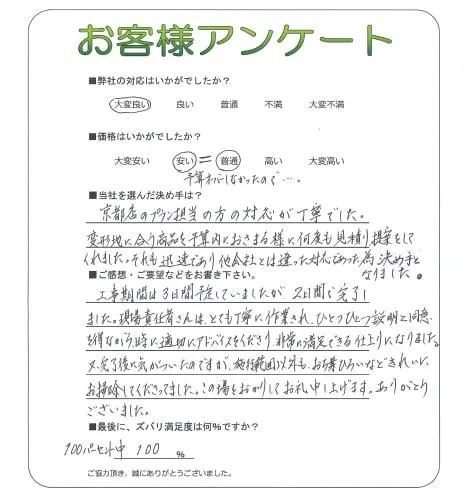 お客様アンケート
■弊社の対応はいかがでしたか？
大変良い 良い 普通 不満 大変不満
■価格はいかがでしたか？
大変安い 安い = 普通 高い 大変高い
予算オーバーしなかったので…。
■当社を選んだ決め手は？
京都店のプラン担当の方の対応が丁寧でした。
変形地に合う商品を予算内におさまる様に何度も見積り、提案をして
くれました。それも迅速であり他会社とは違った対応であった為 決め手と
なりました。
■ご感想・ご要望などをお書き下さい。
工事期間は3日間予定していましたが、2日間で完了し
ました。現場責任者さんは、とても丁寧に作業され、ひとつひとつ説明と同意
を得ながら時に適切にアドバイスをくださり、非常に満足できる仕上りになりました。
又、完了後に気がついたのですが、施行範囲以外も、お落ひろいなどきれいに
お掃除してくださってました。この場をおかりしてお礼申し上げます。ありがとう
ございました。
■最後に、ズバリ満足度は何％ですか？
100パーセント中 100 ％
ご協力頂き、誠にありがとうございました。